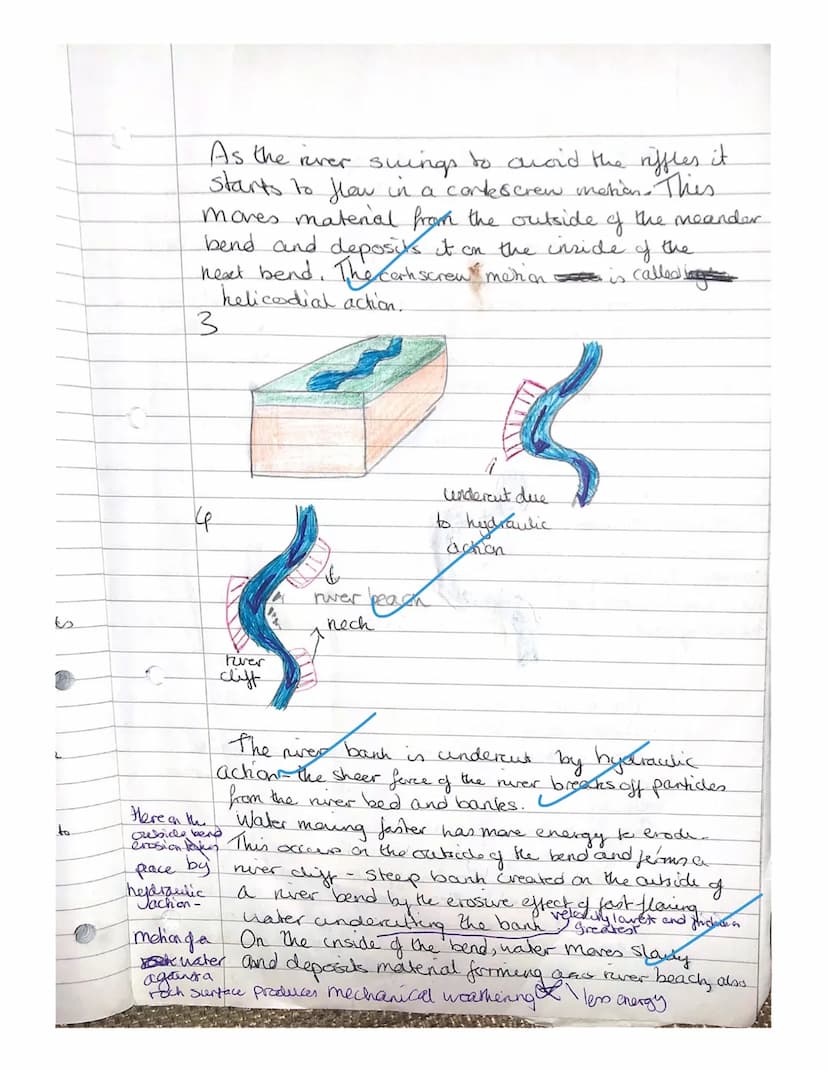 As the river swings to avoid the riffles it
starts to flow in a corkscrew motion. This
moves material from the outside of the meander
bend and deposits it on the inside of the
next bend. The corkscrew motion is called
helicodial action.
3
undercut due
to hydraulic
action
4
river beach
neck
river
cliff
ts
to
The river bank is undercut by hydraulic
action - the sheer force of the river breaks off particles
from the river bed and banks.
Water moving faster has more energy to erode.
This occurs on the outside of the bend and forms a
river cliff - steep bank created on the outside of
a river bend by the erosive effect of fast flowing
water undercutting the bank
velocity lowest and friction
greatest
On the inside of the bend, water moves slowly
and deposits material forming a river beach, also
less energy
Here on the
outside bend
erosion takes
peace by
hydraulic
action -
motion of a
water
against a
rock surface produces mechanical weathering